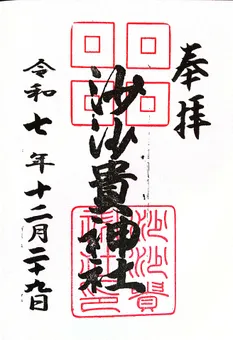 奉拝
沙沙貴神社
令和七年十二月二十九日
沙沙貴
神社之印